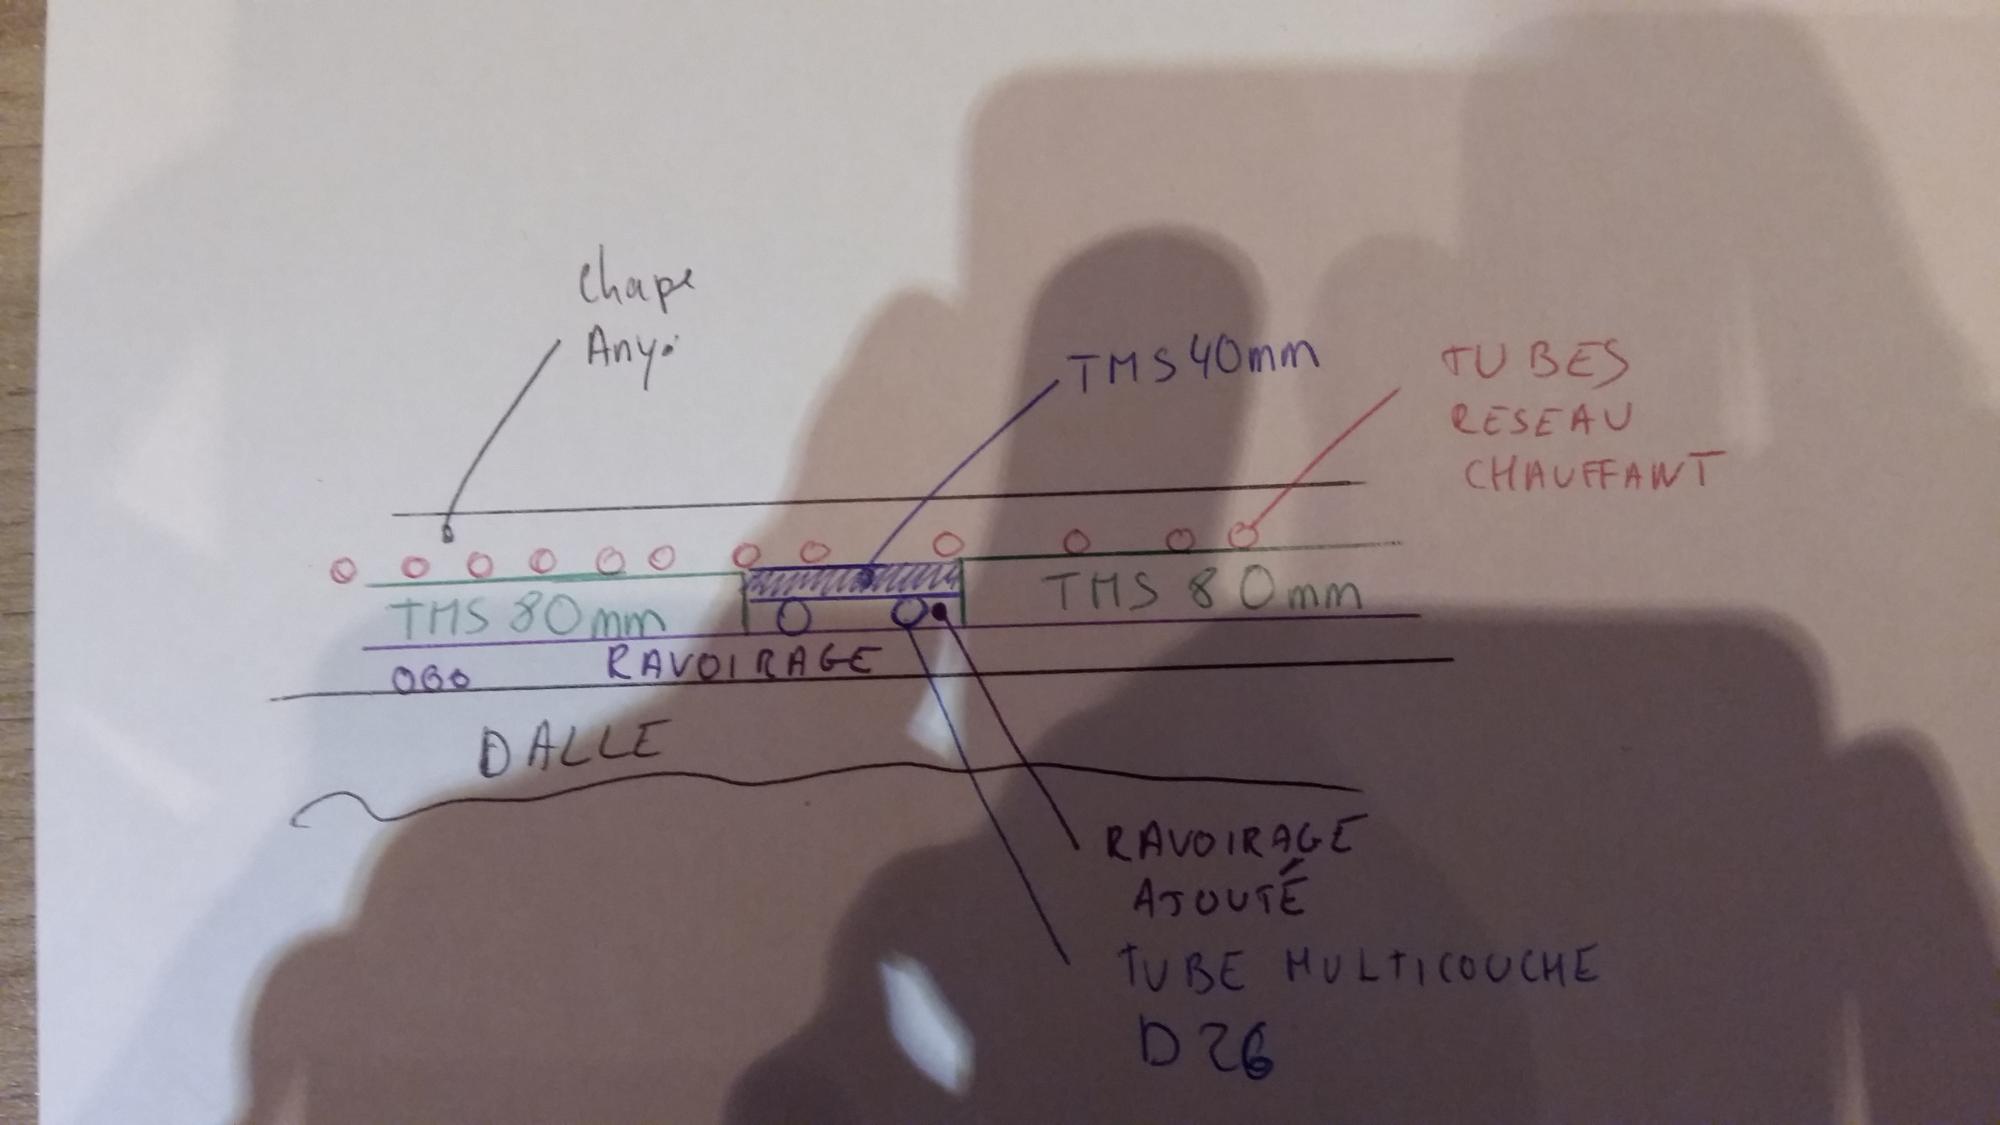 Chape
Any.
TMS 40mm
TUBES
RESEAU
CHAUFFANT
TMS 80mm
TMS 80mm
RAVOIRAGE
DALLE
RAVOIRAGE
AJOUTÉ
TUBE MULTICOUCHE
D26